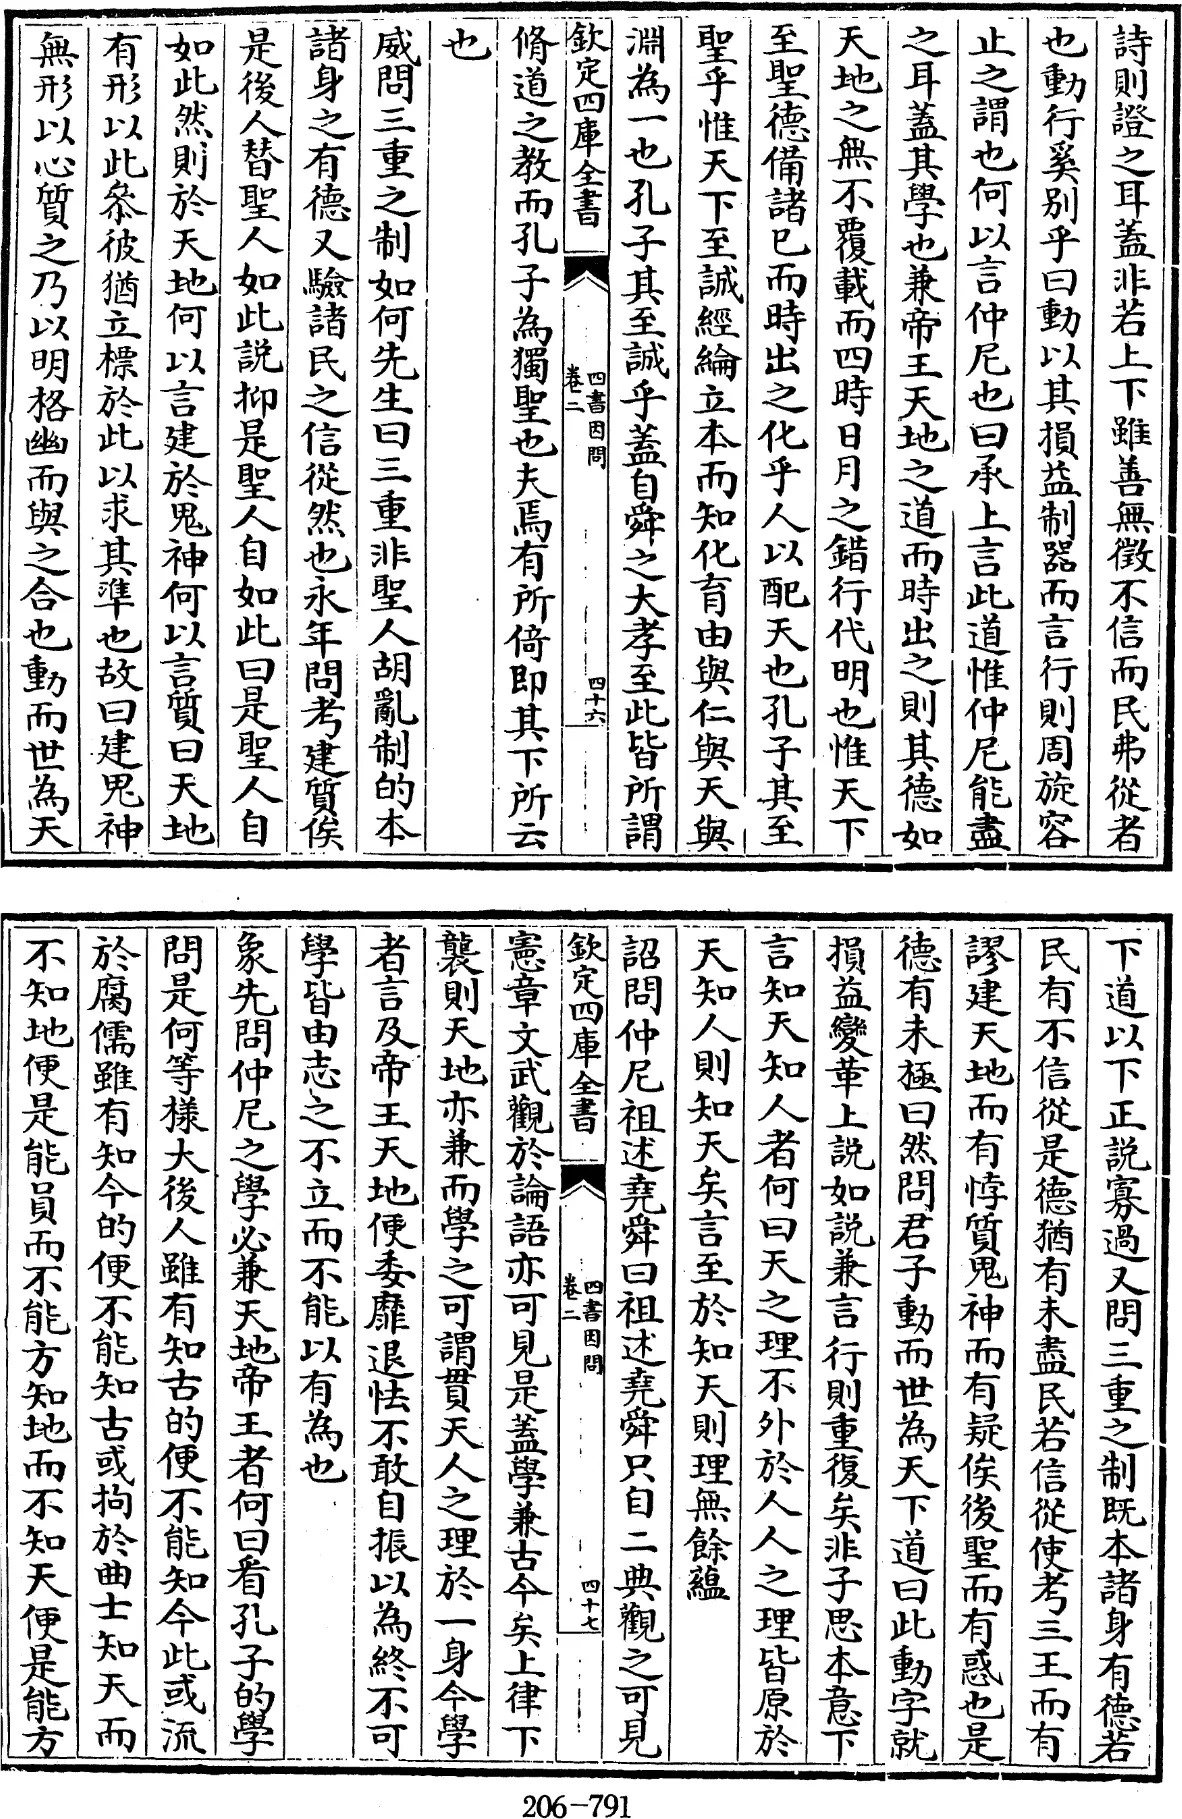 詩則證之耳蓋非若上下雖善無徵不信而民弗從者
也動行奚别乎曰動以其損益制器而言行則周旋容
止之謂也何以言仲尼也曰承上言此道惟仲尼能盡
之耳蓋其學也兼帝王天地之道而時出之則其德如
天地之無不覆載而四時日月之錯行代明也惟天下
至聖德備諸已而時出之化乎人以配天也孔子其至
聖乎惟天下至誠經綸立本而知化育由與仁與天與
淵為一也孔子其至誠乎蓋自舜之大孝至此皆所謂
欽定四庫全書
四書因問
卷二
四十六
脩道之教而孔子為獨聖也夫焉有所倚即其下所云
也
威問三重之制如何先生曰三重非聖人胡亂制的本
諸身之有德又驗諸民之信從然也永年問考建質俟
是後人替聖人如此説抑是聖人自如此曰是聖人自
如此然則於天地何以言建於鬼神何以言質曰天地
有形以此叅彼猶立標於此以求其準也故曰建鬼神
無形以心質之乃以明格幽而與之合也動而世為天
下道以下正説寡過又問三重之制既本諸身有德若
民有不信從是德猶有未盡民若信從使考三王而有
謬建天地而有悖質鬼神而有疑俟後聖而有惑也是
德有未極曰然問君子動而世為天下道曰此動字就
損益變革上説如説兼言行則重復矣非子思本意下
言知天知人者何曰天之理不外於人人之理皆原於
天知人則知天矣言至於知天則理無餘蘊
詔問仲尼祖述堯舜曰祖述堯舜只自二典觀之可見
欽定四庫全書
四書因問
卷二
四十七
憲章文武觀於論語亦可見是蓋學兼古今矣上律下
襲則天地亦兼而學之可謂貫天人之理於一身今學
者言及帝王天地便委靡退怯不敢自振以為終不可
學皆由志之不立而不能以有為也
象先問仲尼之學必兼天地帝王者何曰看孔子的學
問是何等樣大後人雖有知古的便不能知今此或流
於腐儒雖有知今的便不能知古或拘於曲士知天而
不知地便是能員而不能方知地而不知天便是能方
206-791